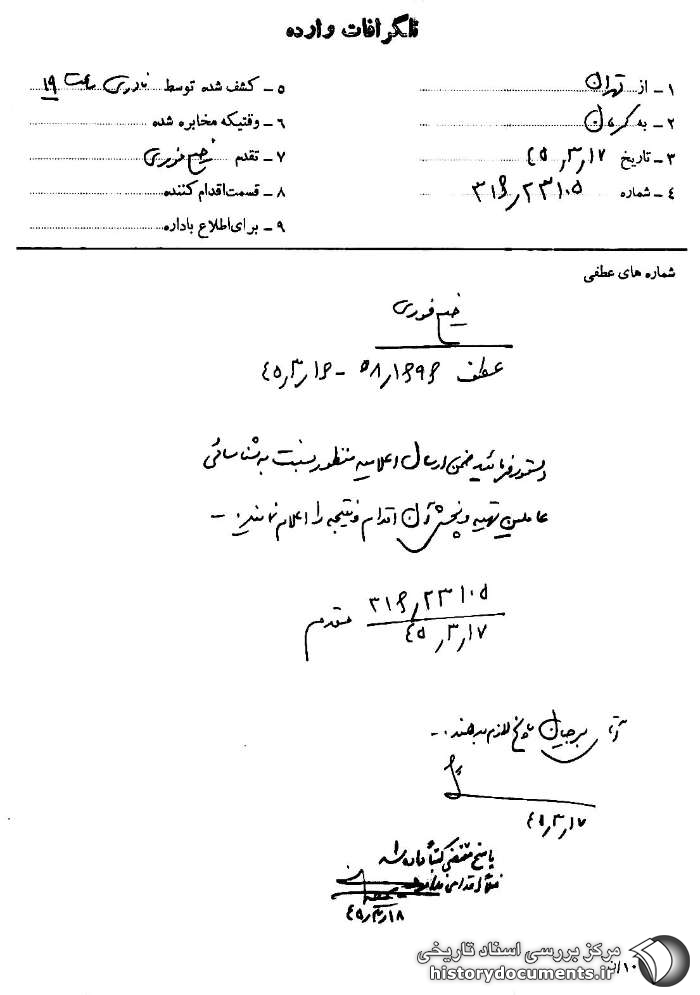 تلگرافات وارده
۱ - از تهران
۲ - به کرمان
۳ - تاریخ ۴۵٫۳٫۱۷
۴ - شماره ۳۱۶٫۲۳۱۰۵
۵ - کشف شده توسط نادری ساعت ۱۹
۶ - وقتیکه مخابره شده
۷ - تقدم خیلی فوری
۸ - قسمت اقدام کننده
۹ - برای اطلاع باداره
شماره های عطفی
خیلی فوری
عطف ۵۸٫۱۶۹۶ - ۴۵٫۳٫۱۶
دستور فرمائید ضمن ارسال اعلامیه منظور نسبت به شناسائی
عاملین تهیه و پخش آن اقدام و نتیجه را اعلام نمایند. -
۳۱۶٫۲۳۱۰۵
۴۵٫۳٫۱۷
مقدم
آقای برجیان پاسخ لازم بدهند. -
۴۵٫۳٫۱۷
پاسخ مقتضی کتباً داده شد
فعلاً اقدامی ندارد
۴۵٫۳٫۱۸
۱۰
مرکز بررسی اسناد تاریخی
historydocuments.ir